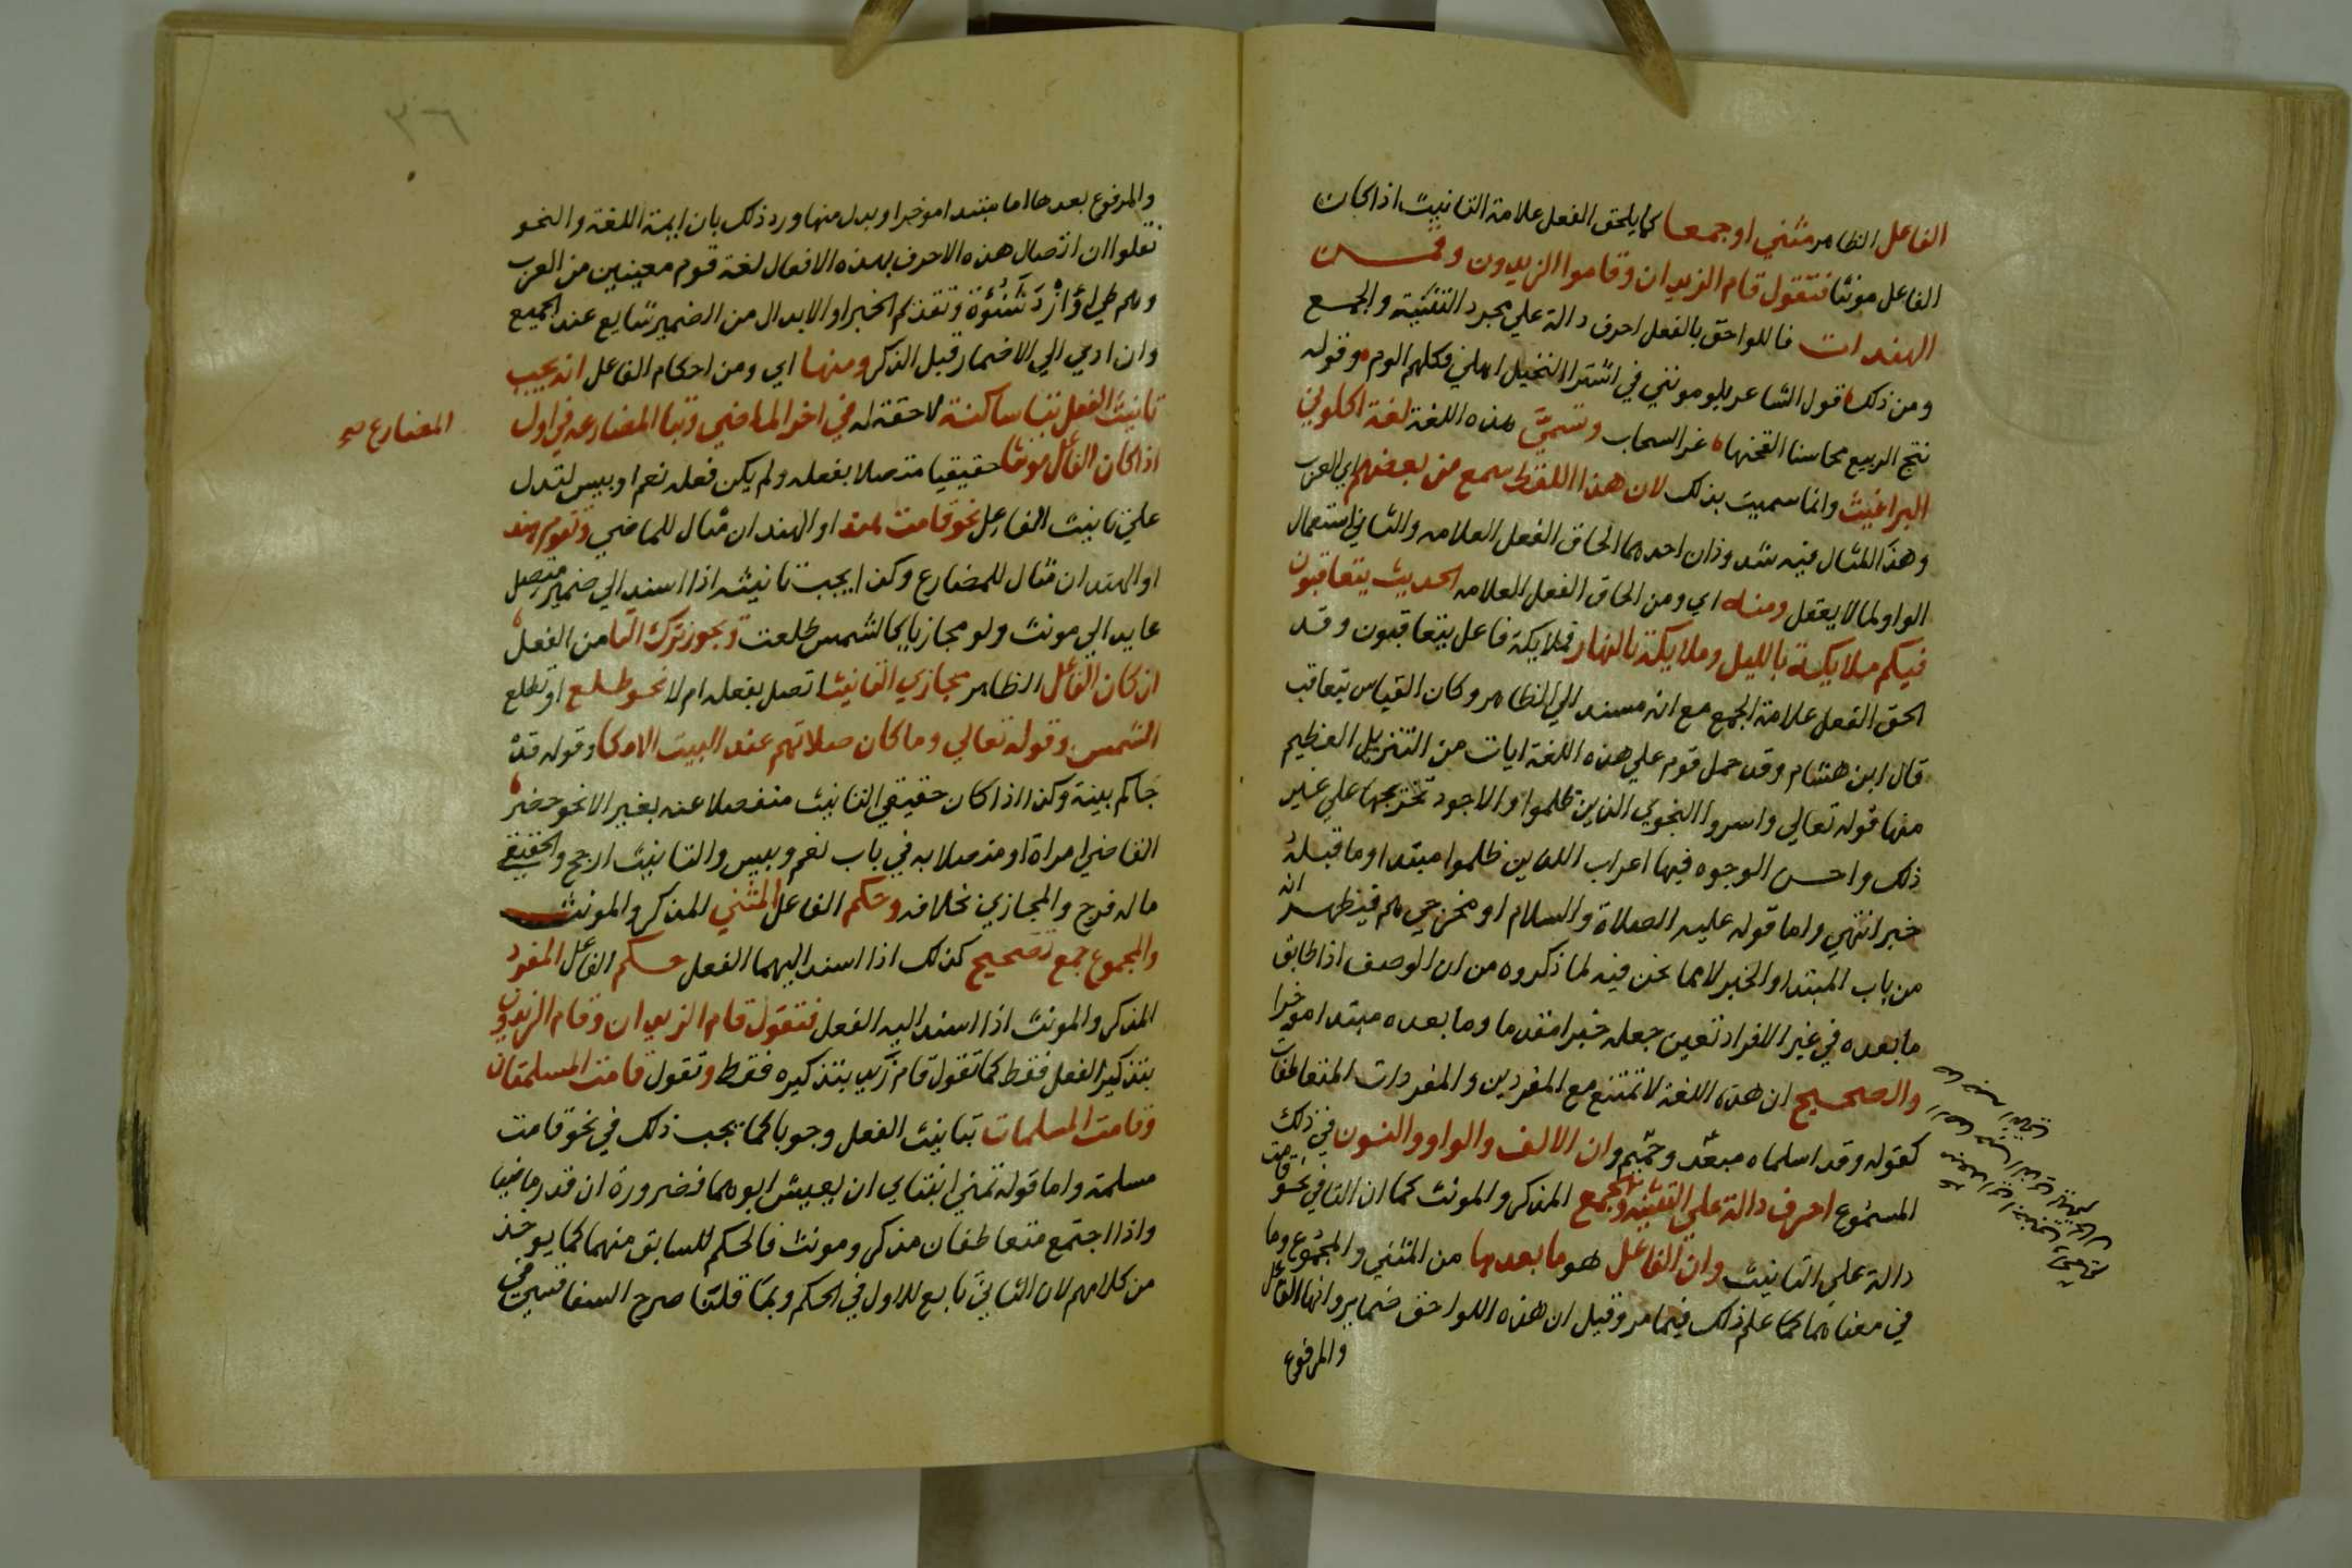 الفاعل الظاهر مثني او جمعا كما يلحق الفعل علامة التانيث اذا كان
الفاعل مونثا فتقول قاما الزيدان وقاموا الزيدون وقمن
الهندات فاللواحق بالفعل احرف دالة علي مجرد التثنية والجمع
ومن ذلك قول الشاعر يلومونني في اشترا النخيل اهلي فكلهم الوم وقوله
نتج الربيع محاسنا القحنها غر السحاب وتسمي هذه اللغة لغة اكلوني
البراغيث وانما سميت بذلك لان هذا اللفظ سمع من بعضهم اي العرب
وهذا المثال فيه شذوذان احدهما الحاق الفعل العلامه والثاني استعمال
الواو لما لا يعقل ومنه اي ومن الحاق الفعل العلامه الحديث يتعاقبون
فيكم ملايكة بالليل وملايكة بالنهار فملايكة فاعل يتعاقبون وقد
الحق الفعل علامة الجمع مع انه مسند الي الظاهر وكان القياس يتعاقب
قال ابن هشام وقد حمل قوم علي هذه اللغة ايات من التنزيل العظيم
منها قوله تعالي واسروا النجوي الذين ظلموا والاجود تخريجها علي غير
ذلك واحسن الوجوه فيها اعراب الذين ظلموا مبتدا وما قبله
خبر انتهي واما قوله عليه الصلاة والسلام او مخرجي هم فيظهر انه
من باب المبتدا والخبر لا مما نحن فيه لما ذكروه من ان الوصف اذا طابق
ما بعده في غير الافراد تعين جعله خبرا مقدما وما بعده مبتدا موخرا
والصحيح ان هذه اللغة لا تمتنع مع المفردين والمفردات المتعاطفات
كقوله وقد اسلماه مبعد وحميم وان الالف والواو والنون في ذلك
المسموع احرف دالة علي التثنية والجمع المذكر والمونث كما ان التا في نحو قامت
دالة علي التانيث وان الفاعل هو ما بعدها من المثني والمجموع وما
في معناهما كما علم ذلك فيما مر وقيل ان هذه اللواحق ضماير وانها الفاعل
والمرفوع
٣٦
والمرفوع بعدها اما مبتدا موخر او بدل منها ورد ذلك بان ايمة اللغة والنحو
نقلوا ان اتصال هذه الاحرف بهذه الافعال لغة قوم معينين من العرب
وهم طي او أزْد شَنُؤَة وتقديم الخبر او الابدال من الضمير شايع عند الجميع
وان ادي الي الاضمار قبل الذكر ومنها اي ومن احكام الفاعل انه يجب
تانيث الفعل بتا ساكنة لاحقة له في اخر الماضي وبتا المضارعه في اول
المضارع صح
اذا كان الفاعل مونثا حقيقيا متصلا بفعله ولم يكن فعله نعم او بيس لتدل
علي تانيث الفاعل نحو قامت هند او الهندان مثال للماضي وتقوم هند
او الهندان مثال للمضارع وكذا يجب تانيثه اذا اسند الي ضمير متصل
عايد الي مونث ولو مجازيا كالشمس طلعت ويجوز ترك التا من الفعل
ان كان الفاعل الظاهر مجازي التانيث اتصل بفعله ام لا نحو طلع او تطلع
الشمس وقوله تعالي وما كان صلاتهم عند البيت الا مكا وقوله قد
جاكم بينة وكذا اذا كان حقيقي التانيث منفصلا عنه بغير الا نحو حضر
القاضي امراة او متصلا به في باب نعم وبيس والتانيث ارجح والحقيقي
ما له فرج والمجازي بخلافه وحكم الفاعل المثني المذكر والمونث
والمجموع جمع تصحيح كذلك اذا اسند اليهما الفعل حكم الفاعل المفرد
المذكر والمونث اذا اسند اليه الفعل فتقول قام الزيدان وقام الزيدون
بتذكير الفعل فقط كما تقول قام زيد بتذكيره فقط وتقول قامت المسلمتان
وقامت المسلمات بتانيث الفعل وجوبا كما يجب ذلك في نحو قامت
مسلمة واما قوله تمني ابنتاي ان يعيش ابوهما فضرورة ان قدر ماضيا
واذا اجتمع متعاطفان مذكر ومونث فالحكم للسابق منهما كما يوخذ
من كلامهم لان الثاني تابع للاول في الحكم وبما قلنا صرح السفاقسي في